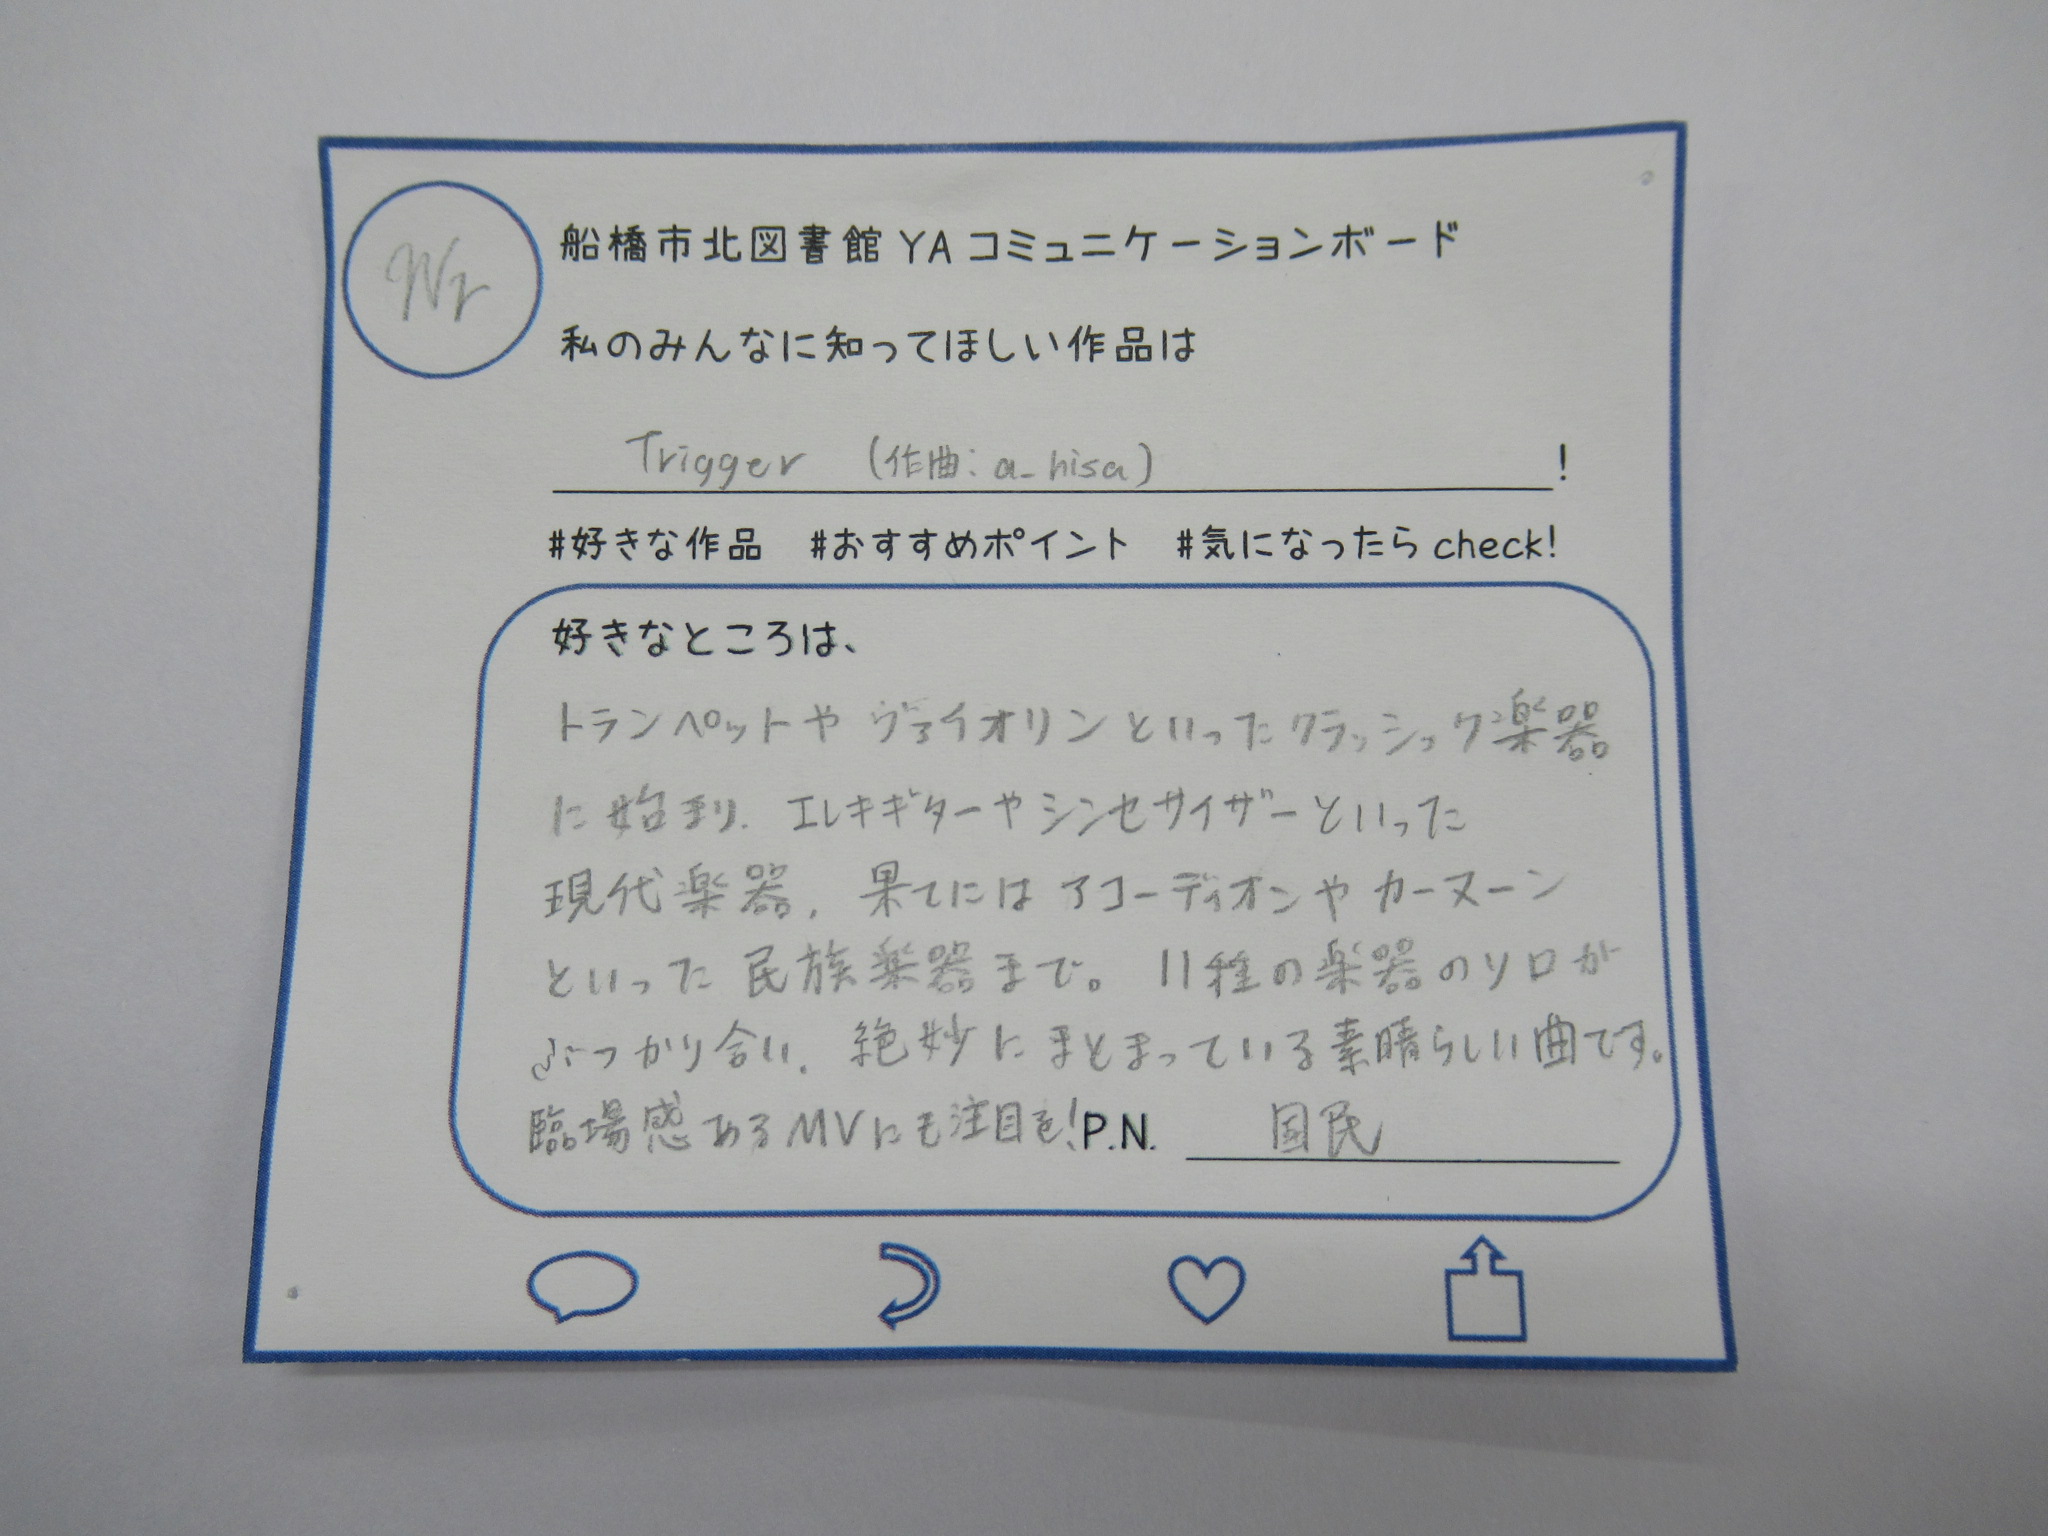 船橋市北図書館YAコミュニケーションボード
私のみんなに知ってほしい作品は
Trigger (作曲:a_hisa)!
#好きな作品 #おすすめポイント #気になったらcheck!
好きなところは、
トランペットやヴァイオリンといったクラッシック楽器
に始まり、エレキギターやシンセサイザーといった
現代楽器、果てにはアコーディオンやカーヌーン
といった民族楽器まで。11種の楽器のソロが
ぶつかり合い、絶妙にまとまっている素晴らしい曲です。
臨場感あるMVにも注目を!P.N. 国民